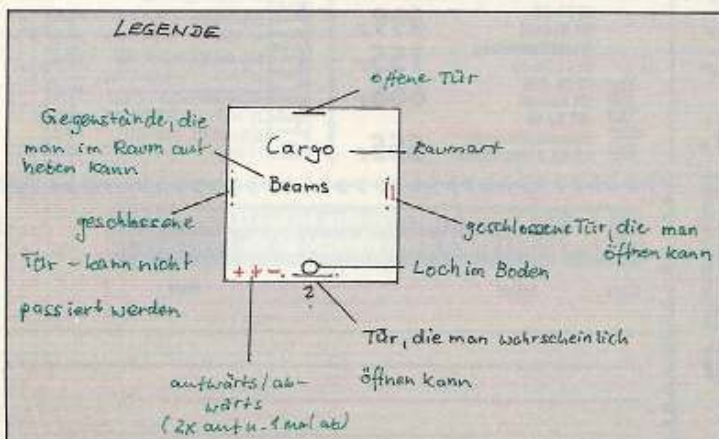 LEGENDE
offene Tür
Gegenstände, die
man im Raum auf
heben kann
Cargo
Raumart
Beams
geschlossene
Tür - kann nicht
passiert werden
geschlossene Tür, die man
öffnen kann
Loch im Boden
++-
2
Tür, die man wahrscheinlich
öffnen kann
aufwärts/ab-
wärts
(2x auf u. 1 mal ab)